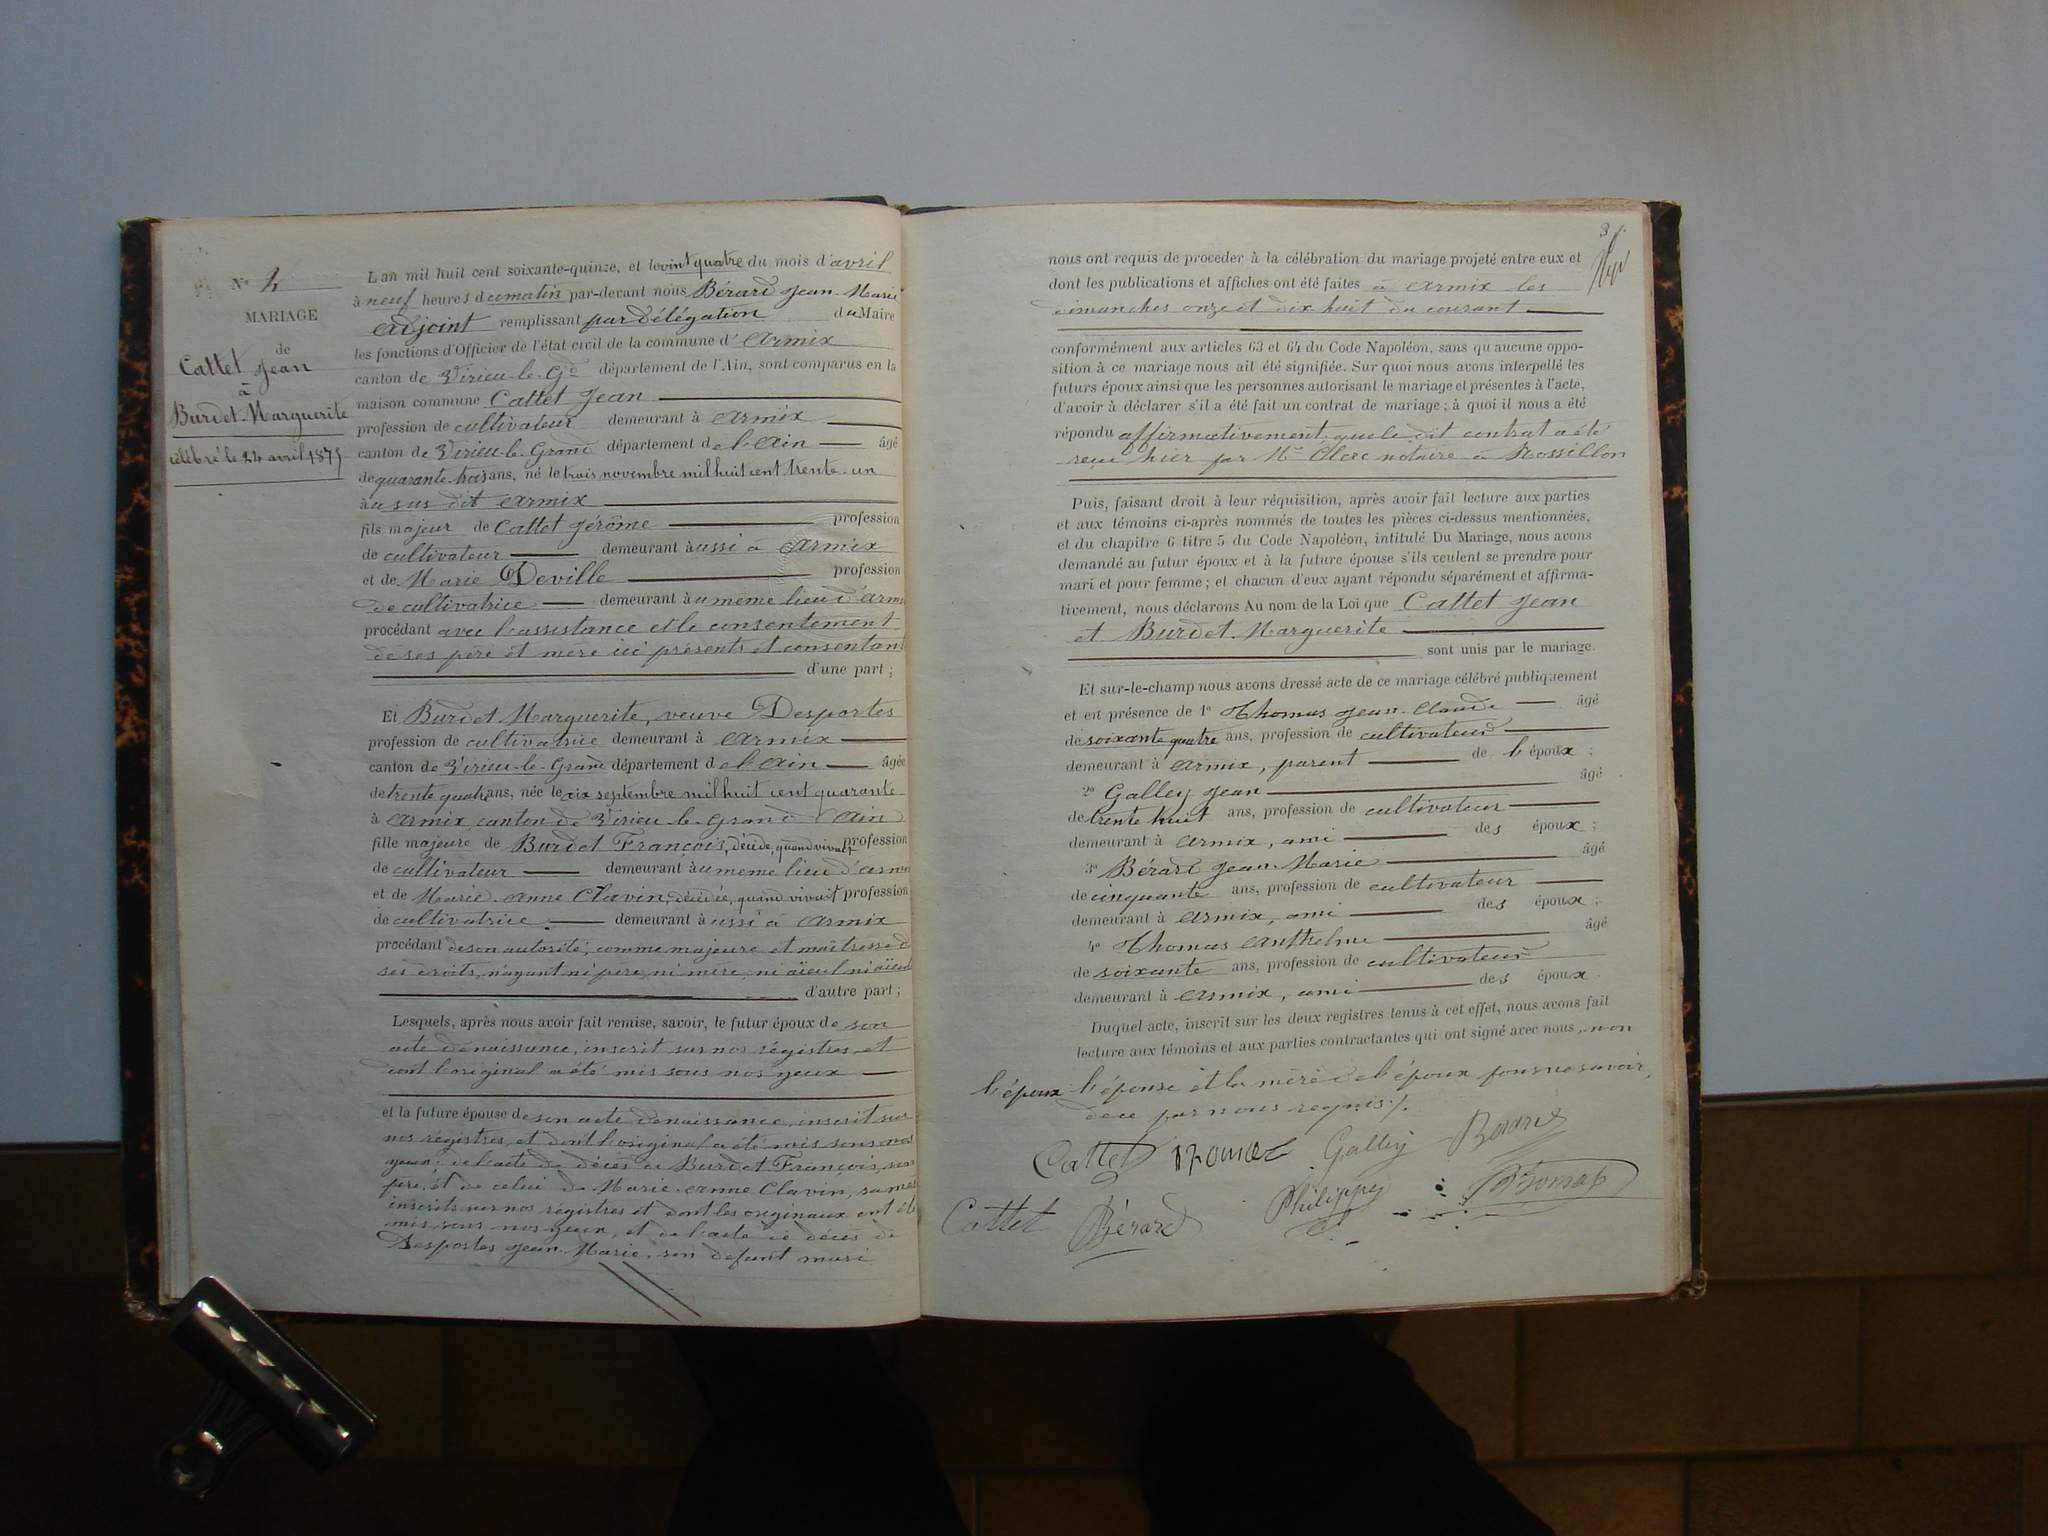 N° 2
MARIAGE
de
Cattet Jean
à
Burdet Marguerite
célébré le 24 avril 1875
L'an mil huit cent soixante-quinze, et le vint quatre du mois d'avril
à neuf heures du matin par-devant nous Bérard Jean-Marie
adjoint remplissant par délégation du Maire
les fonctions d'Officier de l'état civil de la commune d'Armix
canton de Virieu-le-Gd département de l'Ain, sont comparus en la
maison commune Cattet Jean
profession de cultivateur demeurant à Armix
canton de Virieu-le-Grand département de l'Ain âgé
de quarante trois ans, né le trois novembre mil huit cent trente-un
au sus dit Armix
fils majeur de Cattet Jérôme profession
de cultivateur demeurant aussi à Armix
et de Marie Deville profession
de cultivatrice demeurant au même lieu d'Armix
procédant avec l'assistance et le consentement
de ses père et mère ici présents et consentant
d'une part ;
Et Burdet Marguerite, veuve Desportes
profession de cultivatrice demeurant à Armix
canton de Virieu-le-Grand département de l'Ain âgée
de trente quatre ans, née le six septembre mil huit cent quarante
à Armix canton de Virieu-le-Grand Ain
fille majeure de Burdet François, décédé, quand vivait profession
de cultivateur demeurant au même lieu d'Armix
et de Marie-Anne Clavin, décédée, quand vivait profession
de cultivatrice demeurant aussi à Armix
procédant de son autorité, comme majeure et maîtresse de
ses droits, n'ayant ni père, ni mère, ni aïeul ni aïeule
d'autre part ;
Lesquels, après nous avoir fait remise, savoir, le futur époux de son
acte de naissance, inscrit sur nos régistres et
dont l'original a été mis sous nos yeux
et la future épouse de son acte de naissance, inscrit sur
nos régistres, et dont l'original a été mis sous nos
yeux, de l'acte de décès de Burdet François, son
père, et de celui de Marie-Anne Clavin, sa mère
inscrits sur nos régistres et dont les originaux ont été
mis sous nos yeux, et de l'acte de décès de
Desportes Jean-Marie, son defunt mari
3
nous ont requis de procéder à la célébration du mariage projeté entre eux et
dont les publications et affiches ont été faites à Armix les
dimanches onze et dix huit du courant
conformément aux articles 63 et 64 du Code Napoléon, sans qu'aucune oppo-
sition à ce mariage nous ait été signifiée. Sur quoi nous avons interpellé les
futurs époux ainsi que les personnes autorisant le mariage et présentes à l'acte,
d'avoir à déclarer s'il a été fait un contrat de mariage ; à quoi il nous a été
répondu affirmativement que le dit contrat a été
reçu hier par Me Clerc notaire à Rossillon
Puis, faisant droit à leur réquisition, après avoir fait lecture aux parties
et aux témoins ci-après nommés de toutes les pièces ci-dessus mentionnées,
et du chapitre 6 titre 5 du Code Napoléon, intitulé Du Mariage, nous avons
demandé au futur époux et à la future épouse s'ils veulent se prendre pour
mari et pour femme ; et chacun d'eux ayant répondu séparément et affirma-
tivement, nous déclarons Au nom de la Loi que Cattet Jean
et Burdet Marguerite
sont unis par le mariage.
Et sur-le-champ nous avons dressé acte de ce mariage célébré publiquement
et en présence de 1° Thomas Jean-Claude âgé
de soixante quatre ans, profession de cultivateur
demeurant à Armix, parent de l'époux ;
2° Galley Jean âgé
de trente huit ans, profession de cultivateur
demeurant à Armix, ami des époux ;
3° Bérard Jean-Marie âgé
de cinquante ans, profession de cultivateur
demeurant à Armix, ami des époux ;
4° Thomas Anthelme âgé
de soixante ans, profession de cultivateur
demeurant à Armix, ami des époux.
Duquel acte, inscrit sur les deux registres tenus à cet effet, nous avons fait
lecture aux témoins et aux parties contractantes qui ont signé avec nous, non
l'époux l'épouse et la mère de l'époux pour ne savoir,
de ce par nous requis ./.
Cattet Thomas Galley Berard
Cattet Bérard Philippe Thomas